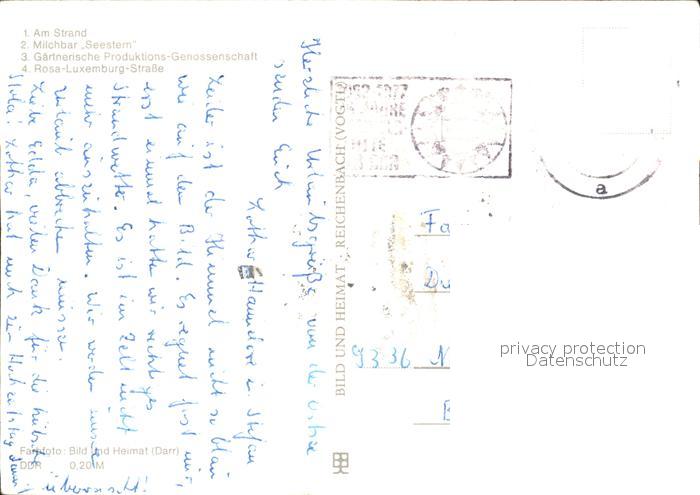 1. Am Strand
2. Milchbar „Seestern"
3. Gärtnerische Produktions-Genossenschaft
4. Rosa-Luxemburg-Straße
Herzliche Urlaubsgrüße von der Ostsee
senden Euch
Lothar, Hannelore u. Stefan
Leider ist der Himmel nicht so blau
wie auf dem Bild. Es regnet fast nur,
erst einmal hatten wir richtiges
Strandwetter. Es ist im Zelt nicht
mehr auszuhalten. Wir werden unseren
Urlaub abbrechen müssen.
Liebe Gelda, vielen Dank für die hübsche
Lothar hat mich zum Hochzeitstag damit
überrascht!
BILD UND HEIMAT REICHENBACH (VOGTL)
a
Fa
9336 N
privacy protection
Datenschutz
Farbfoto: Bild und Heimat (Darr)
DDR 0,20 M